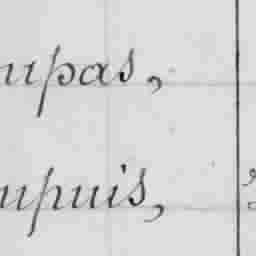 upas,
upuis,